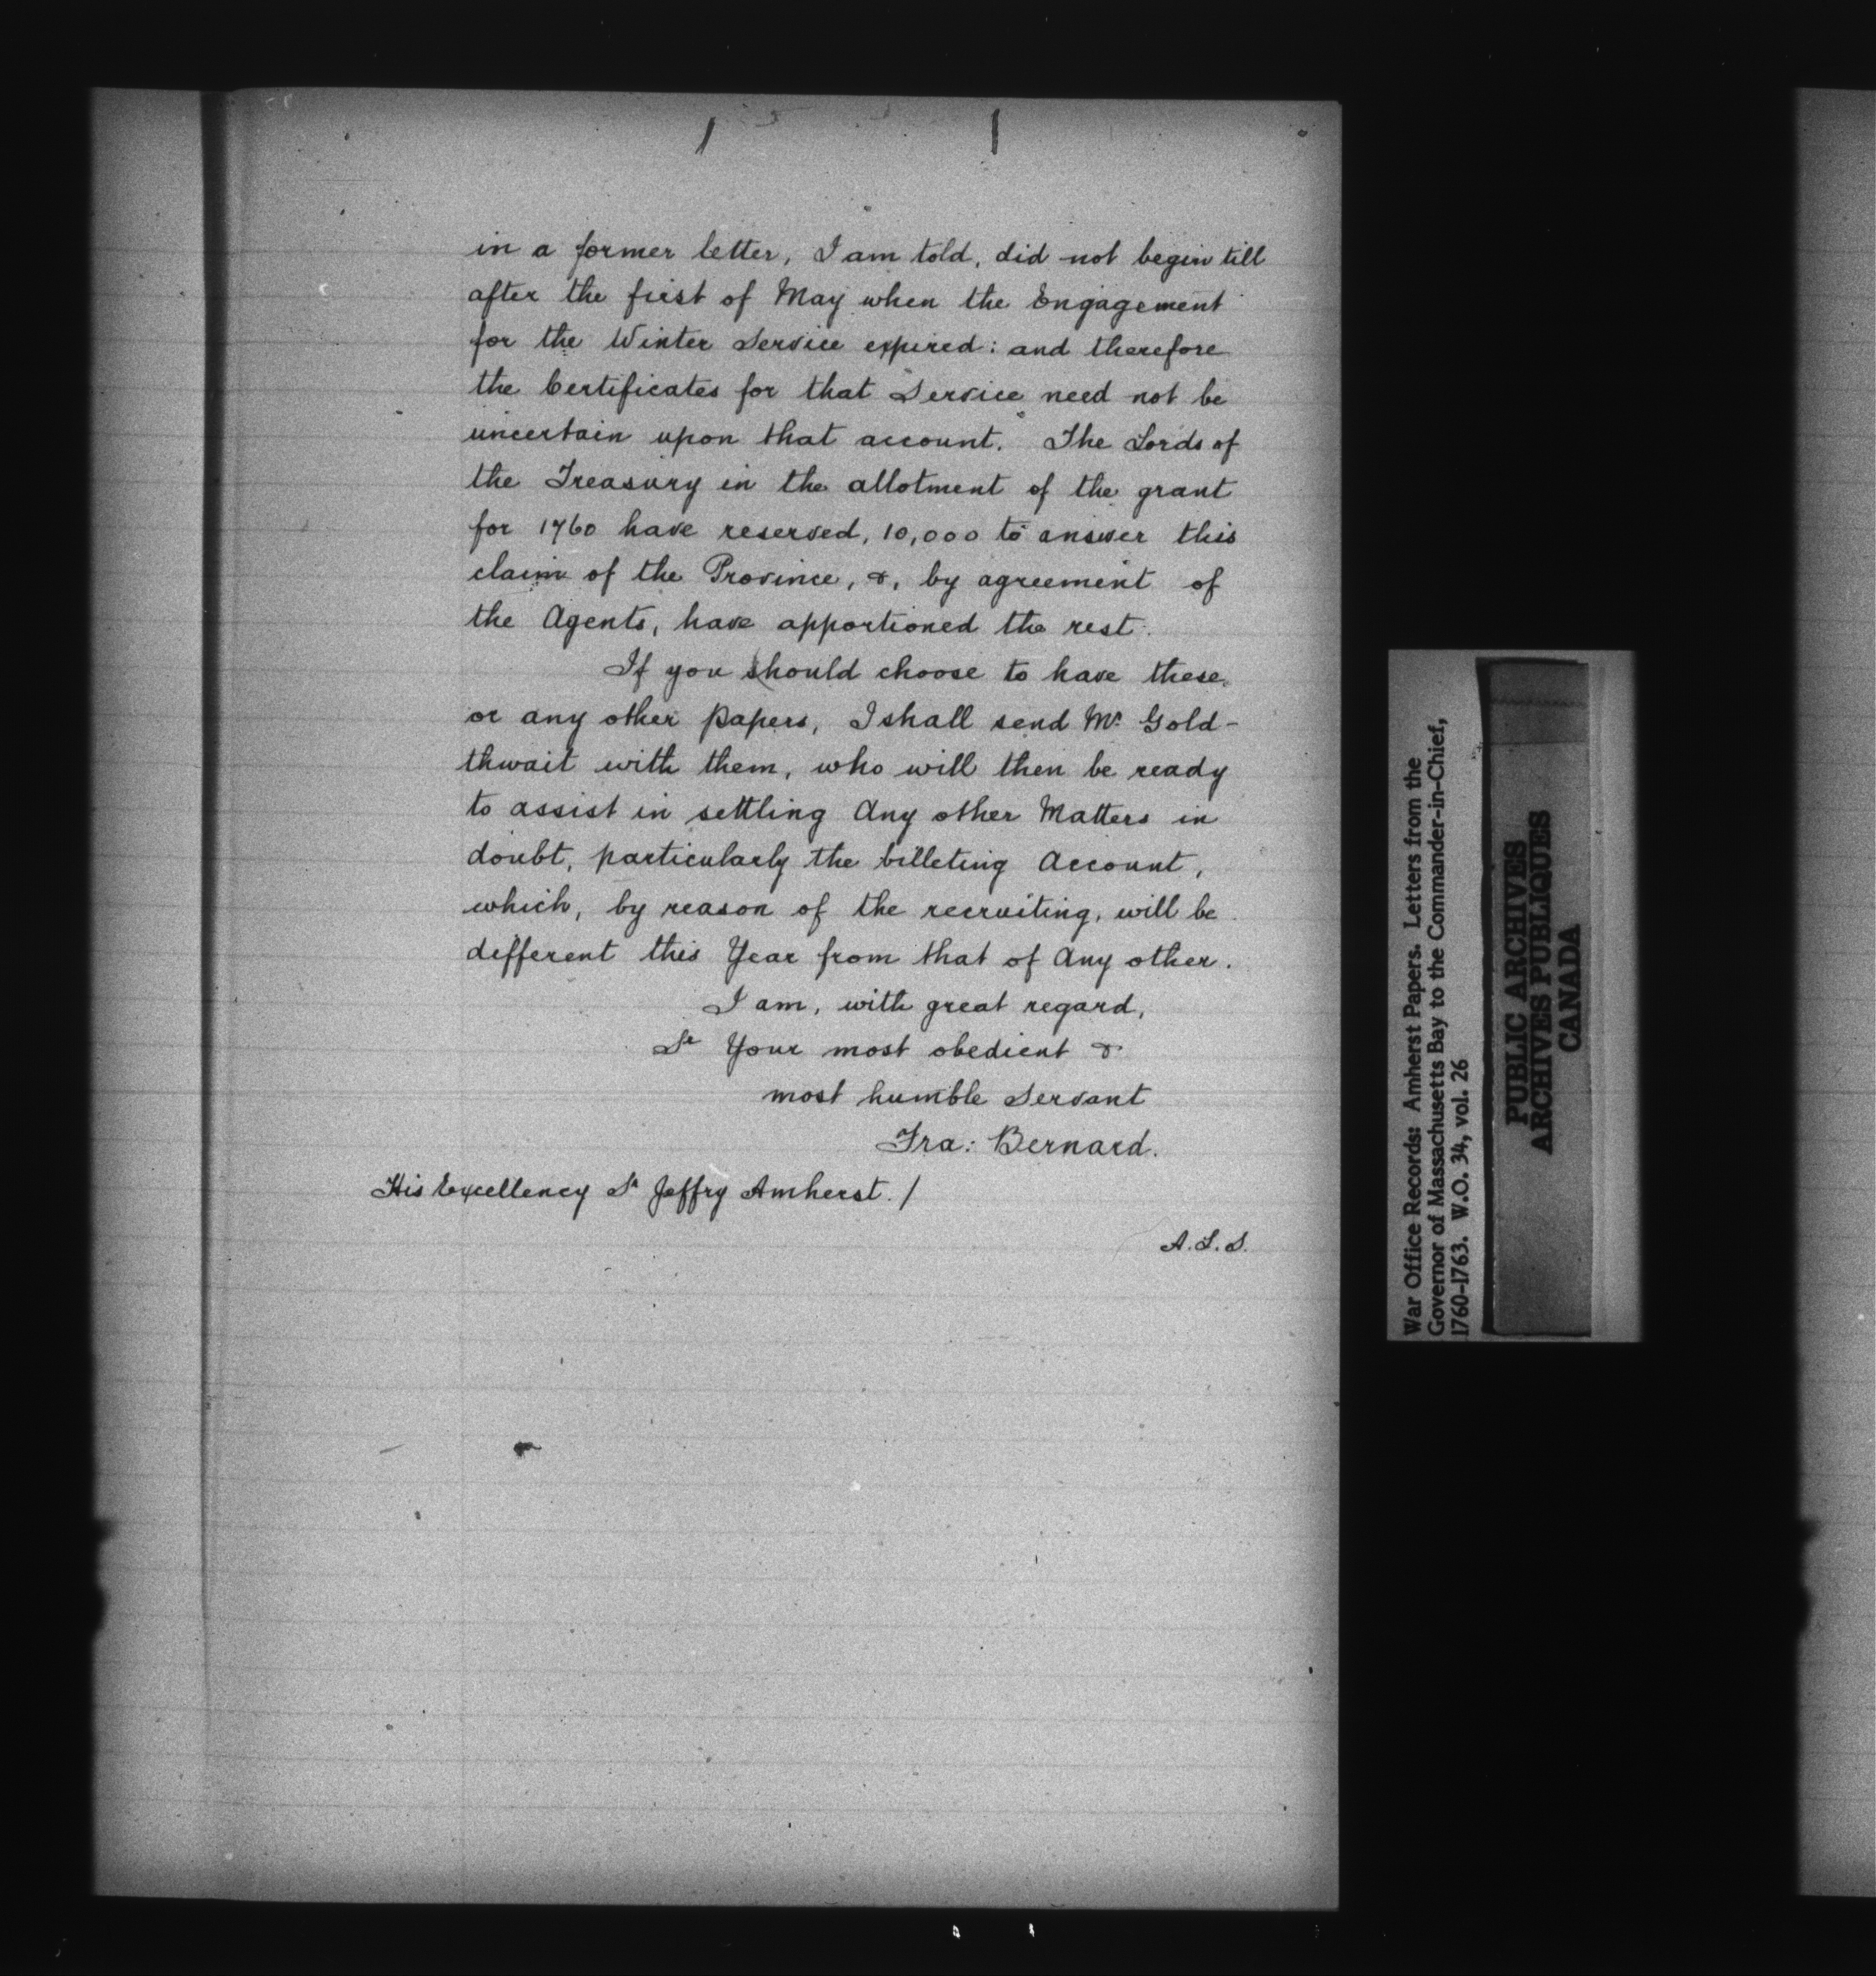 in a former letter, I am told, did not begin till
after the first of May when the Engagement
for the Winter Service expired: and therefore
the Certificates for that Service need not be
uncertain upon that account. The Lords of
the Treasury in the allotment of the grant
for 1760 have reserved, 10,000 to answer this
claim of the Province, &, by agreement of
the Agents, have apportioned the rest.
If you should choose to have these
or any other papers, I shall send Mr Gold-
thwait with them, who will then be ready
to assist in settling Any other Matters in
doubt, particularly the billeting Account,
which, by reason of the recruiting, will be
different this Year from that of Any other.
I am, with great regard,
Sr Your most obedient &
most humble Servant
Fra: Bernard.
His Excellency Sr Jeffry Amherst. /
A.L.S.
War Office Records: Amherst Papers. Letters from the
Governor of Massachusetts Bay to the Commander-in-Chief,
1760-1763. W.O. 34, vol. 26
PUBLIC ARCHIVES
ARCHIVES PUBLIQUES
CANADA